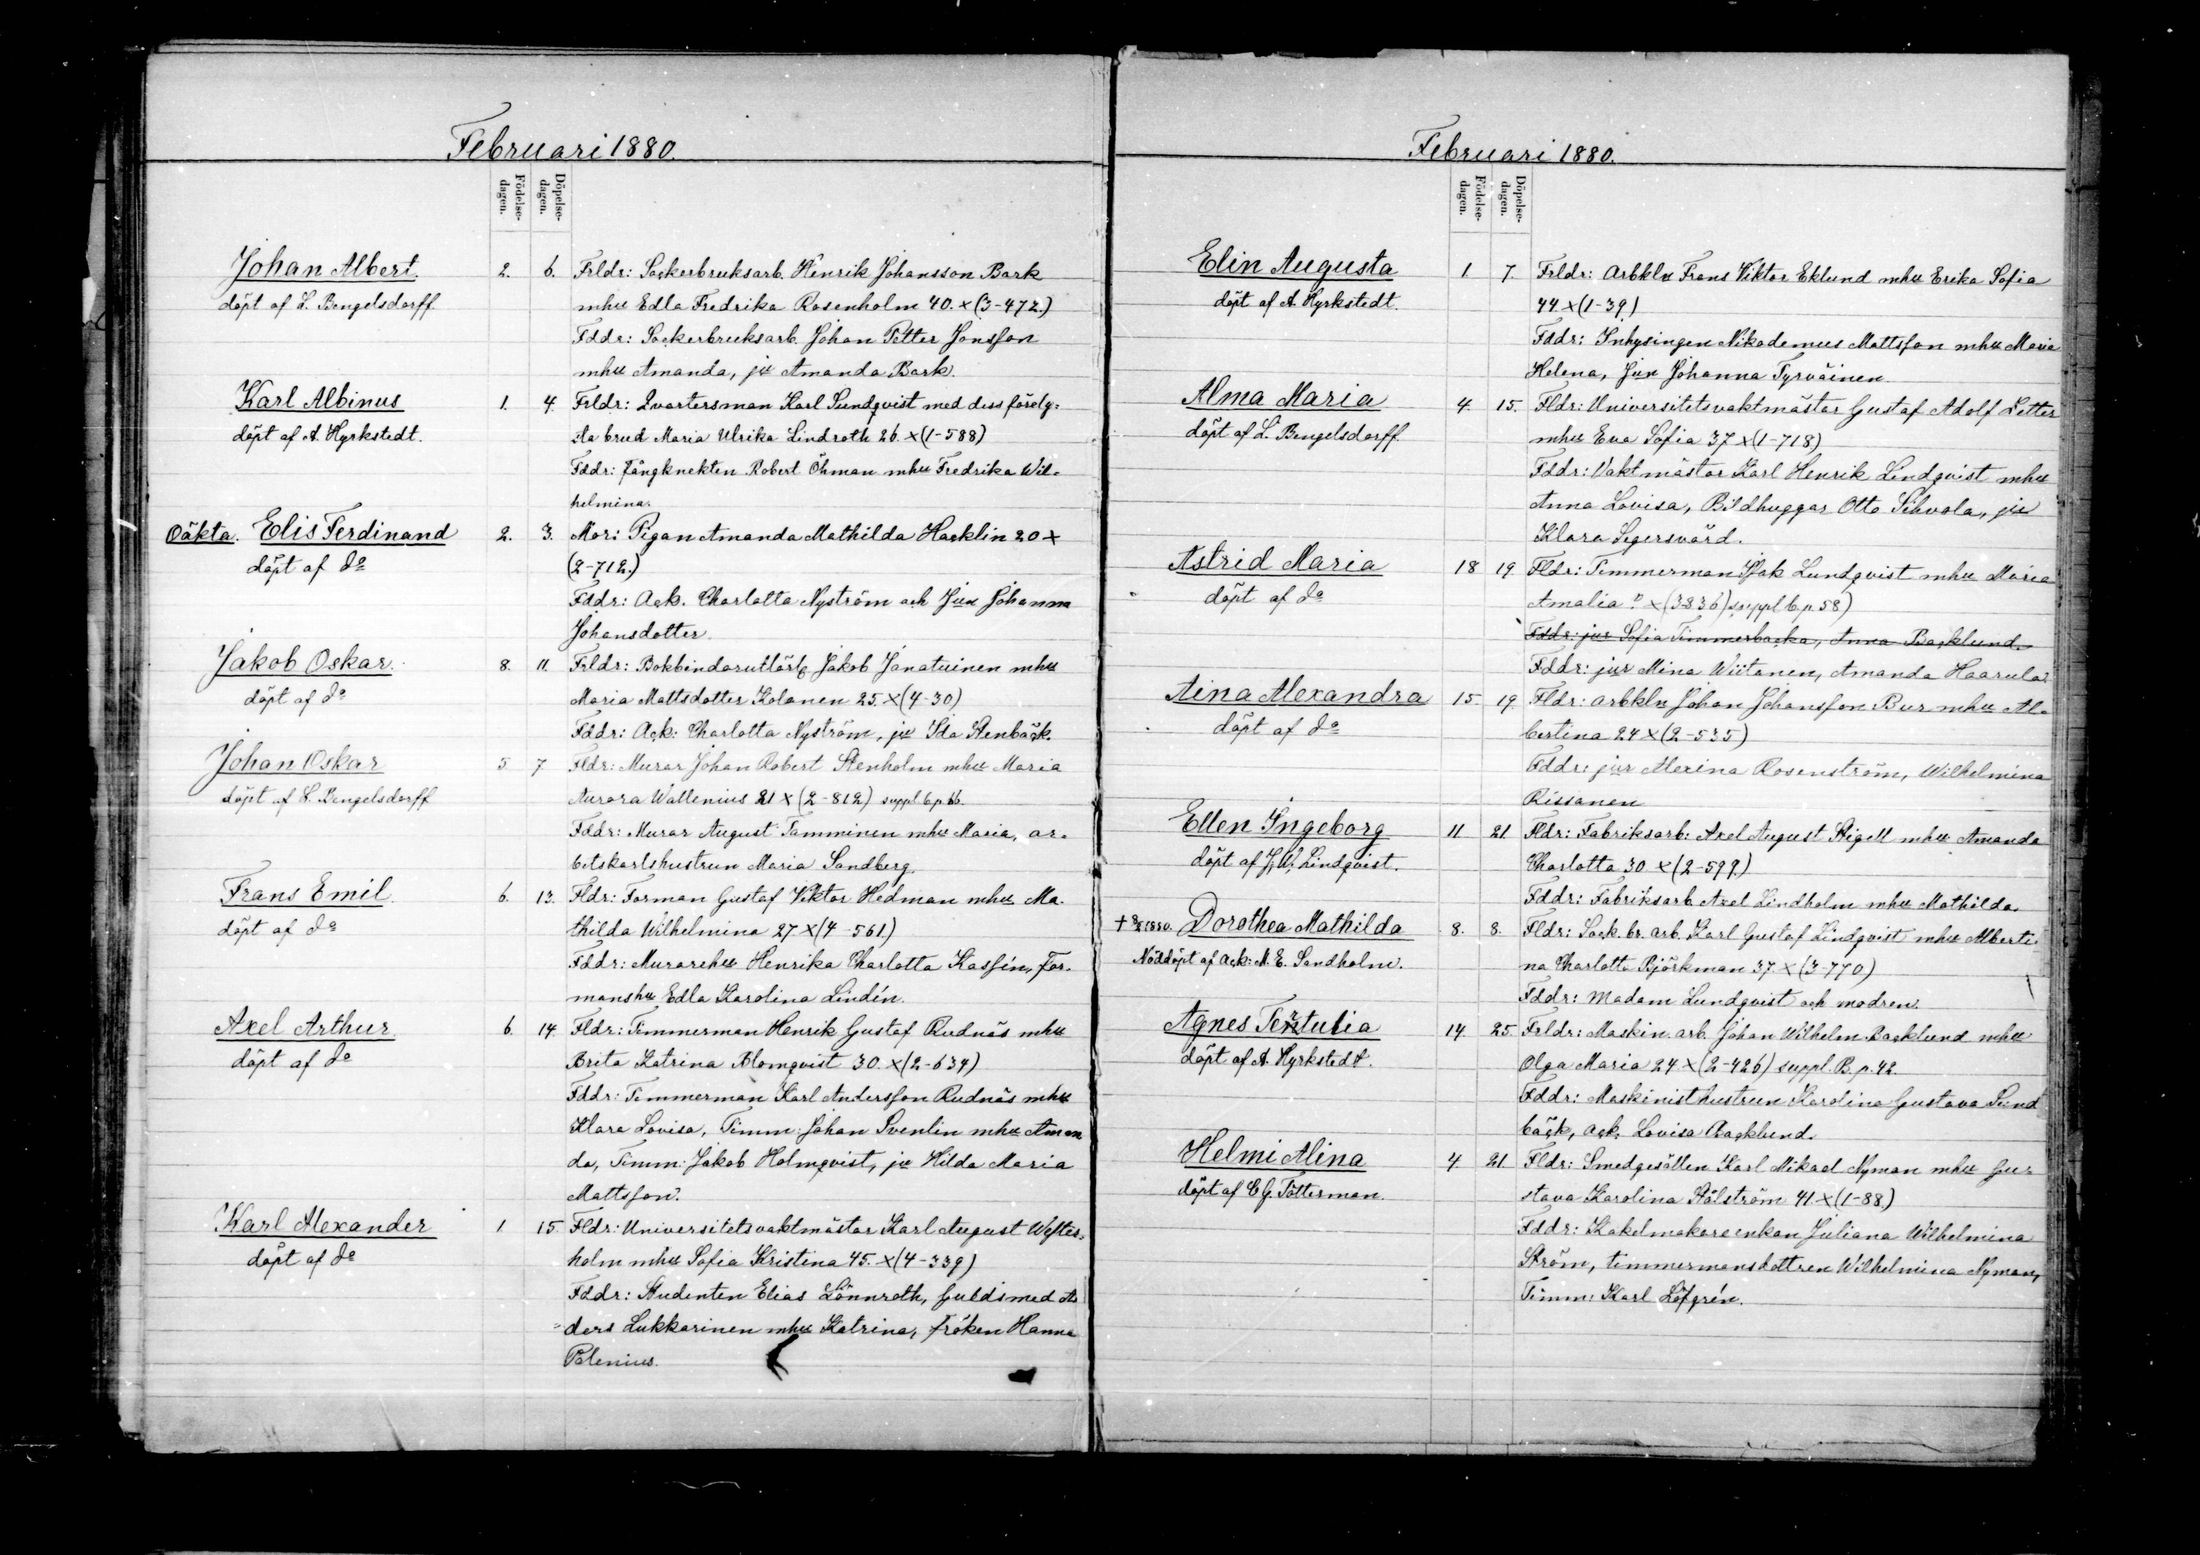 Februari 1880.
Födelse-dagen.
Döpelse-dagen.
Johan Albert. 2. 6. Frldr: Sockerbruksarb. Henrik Johansson Bark
döpt af L. Bengelsdorff. mhu Edla Fredrika Rosenholm 40. x (3-472.)
Fddr: Sockerbruksarb. Johan Petter Jonsson
mhu Amanda, ju Amanda Bark.
Karl Albinus 1. 4. Frldr: Qvartersman Karl Sundqvist med dess förelg-
döpt af A. Hyrkstedt. da brud Maria Ulrika Lindroth 26. x (1-588)
Fddr: Fångknekten Robert Öhman mhu Fredrika Wil-
helmina.
Oäkta. Elis Ferdinand 2. 3. Mor: Pigan Amanda Mathilda Hacklin 20 x
döpt af do (2-712.)
Fddr: Ack. Charlotta Nyström och Jun Johanna
Johansdotter.
Jakob Oskar. 8. 11. Frldr: Bokbindarutlärl. Jakob Janatuinen mhu
döpt af do Maria Mattsdotter Kolanen 25. x (4-30)
Fddr: Ack: Charlotta Nyström, ju Ida Stenbäck.
Johan Oskar 5 7 Fldr: Murar Johan Robert Stenholm mhu Maria
döpt af L. Bengelsdorff Aurora Wallenius 21 x (2-812) suppl b p 66.
Fddr: Murar August Tamminen mhu Maria, ar-
betskarlshustrun Maria Sandberg.
Frans Emil. 6. 13. Fldr: Forman Gustaf Viktor Hedman mhu Ma-
döpt af do thilda Wilhelmina 27 x (4-561)
Fddr: Murarehu Henrika Charlotta Kassén, For-
manshu Edla Karolina Lindén.
Axel Arthur 6. 14. Fldr: Timmerman Henrik Gustaf Rudnäs mhu
döpt af do Brita Katrina Blomqvist 30. x (2-634)
Fddr: Timmerman Karl Andersson Rudnäs mhu
Klara Lovisa, Timm: Johan Svenlin mhu Aman
da, Timm: Jakob Holmqvist, ju Hilda Maria
Mattsson.
Karl Alexander 1 15. Fldr: Universitetsvaktmästar Karl August Wester-
döpt af do holm mhu Sofia Kristina 45. x (4-339)
Fddr: Studenten Elias Lönnroth, Guldsmed
ders Lukkarinen mhu Katrina, fröken Hanna
Polenius.
Februari 1880.
Födelse-dagen.
Döpelse-dagen.
Elin Augusta 1 7. Frldr: Arbkln Frans Viktor Eklund mhu Erika Sofia
döpt af A. Hyrkstedt. 44. x (1-39)
Fddr: Inhysingen Nikodemus Mattsson mhu Maria
Helena, Jun Johanna Tyrväinen.
Alma Maria 4. 15. Fldr: Universitetsvaktmästar Gustaf Adolf Petter
döpt af L. Bengelsdorff. mhu Eva Sofia 37 x (1-718)
Fddr: Vaktmästar Karl Henrik Lindqvist mhu
Anna Lovisa, Bildhuggar Otto Sihvola, ju
Klara Segersvärd.
Astrid Maria 18 19 Fldr: Timmerman Isak Lundqvist mhu Maria
döpt af do Amalia x (3-836) suppl b p. 58)
Fddr: jur Sofia Timmerbacka, Anna Backlund.
Fddr: jur Mina Wiitanen, Amanda Haarula.
Aina Alexandra 15. 19. Fldr: Arbkln Johan Johansson Bur mhu Al-
döpt af do bertina 24 x (2-535)
Fddr: jur Alexina Rosenström, Wilhelmina
Rissanen
Ellen Ingeborg 11 21. Fldr: Fabriksarb: Axel August Stigell mhu Amanda
döpt af J. W. Lindqvist. Charlotta 30 x (2-599.)
Fddr: Fabriksarb Axel Lindholm mhu Mathilda.
+ 8/2 1880. Dorothea Mathilda 8. 8. Fldr: Sock. br. arb. Karl Gustaf Lindqvist mhu Alberti-
Nöddöpt af Ack: N. E. Sandholm. na Charlotta Björkman 37. x (3-770)
Fddr: Madam Lundqvist och modren.
Agnes Tertulia 14. 25. Frldr: Maskin. arb. Johan Wilhelm Backlund mhu
döpt af A. Hyrkstedt. Olga Maria 24 x (2-426) suppl. B. p. 42.
Fddr: Maskinisthustrun Karolina Gustava Sund
bäck, ack: Lovisa Backlund.
Helmi Alina 4. 21. Fldr: Smedgesällen Karl Mikael Nyman mhu Gu-
döpt af C G. Tötterman. stava Karolina Stålström 41. x (1-88.)
Fddr: Kakelmakareenkan Juliana Wilhelmina
Ström, timmermansdottren Wilhelmina Nyman,
Timm: Karl Löfgrén.